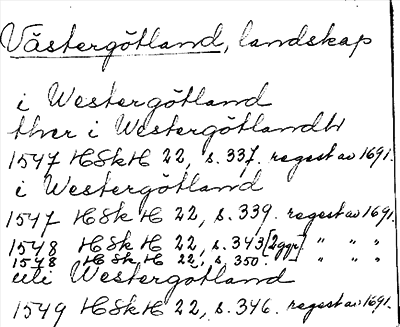 Västergötland, landskap
i Westergötland
thr i Westergötlandh
1547 HSkH 22, s. 337. regest av 1691.
i Westergötland
1547 HSkH 22, s. 339. regest av 1691.
1548 HSkH 22, s. 343 [2ggr]. " " "
1548 HSkH 22, s. 350. " " "
uti Westergötland
1549 HSkH 22, s. 346. regest av 1691.